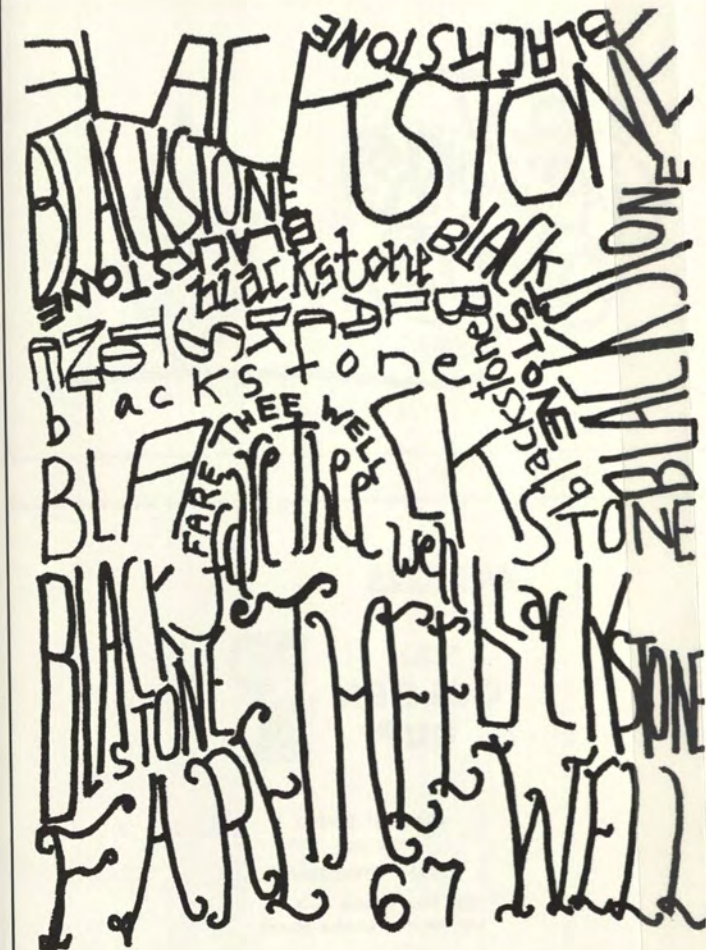 BLACKSTONE
BLACKSTONE
BLACKSTONE
BLACKSTONE
blackstone
BLACKSTONE
BLACKSTONE
BLACKSTONE
blackstone
blackstone
BLACKSTONE
FARE THEE WELL
fare thee well
BLACKSTONE
blackSTONE
FARE THEE WELL
67